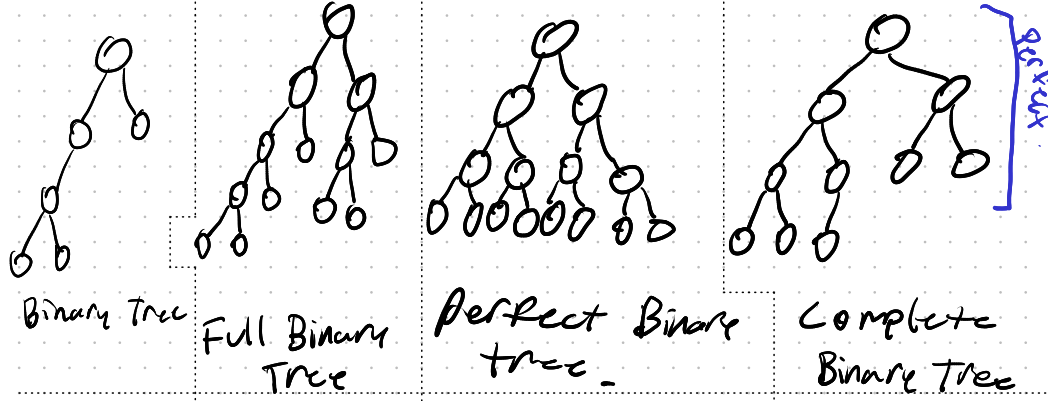 Binary Tree
Full Binary
Tree
Perfect Binary
tree
Complete
Binary Tree